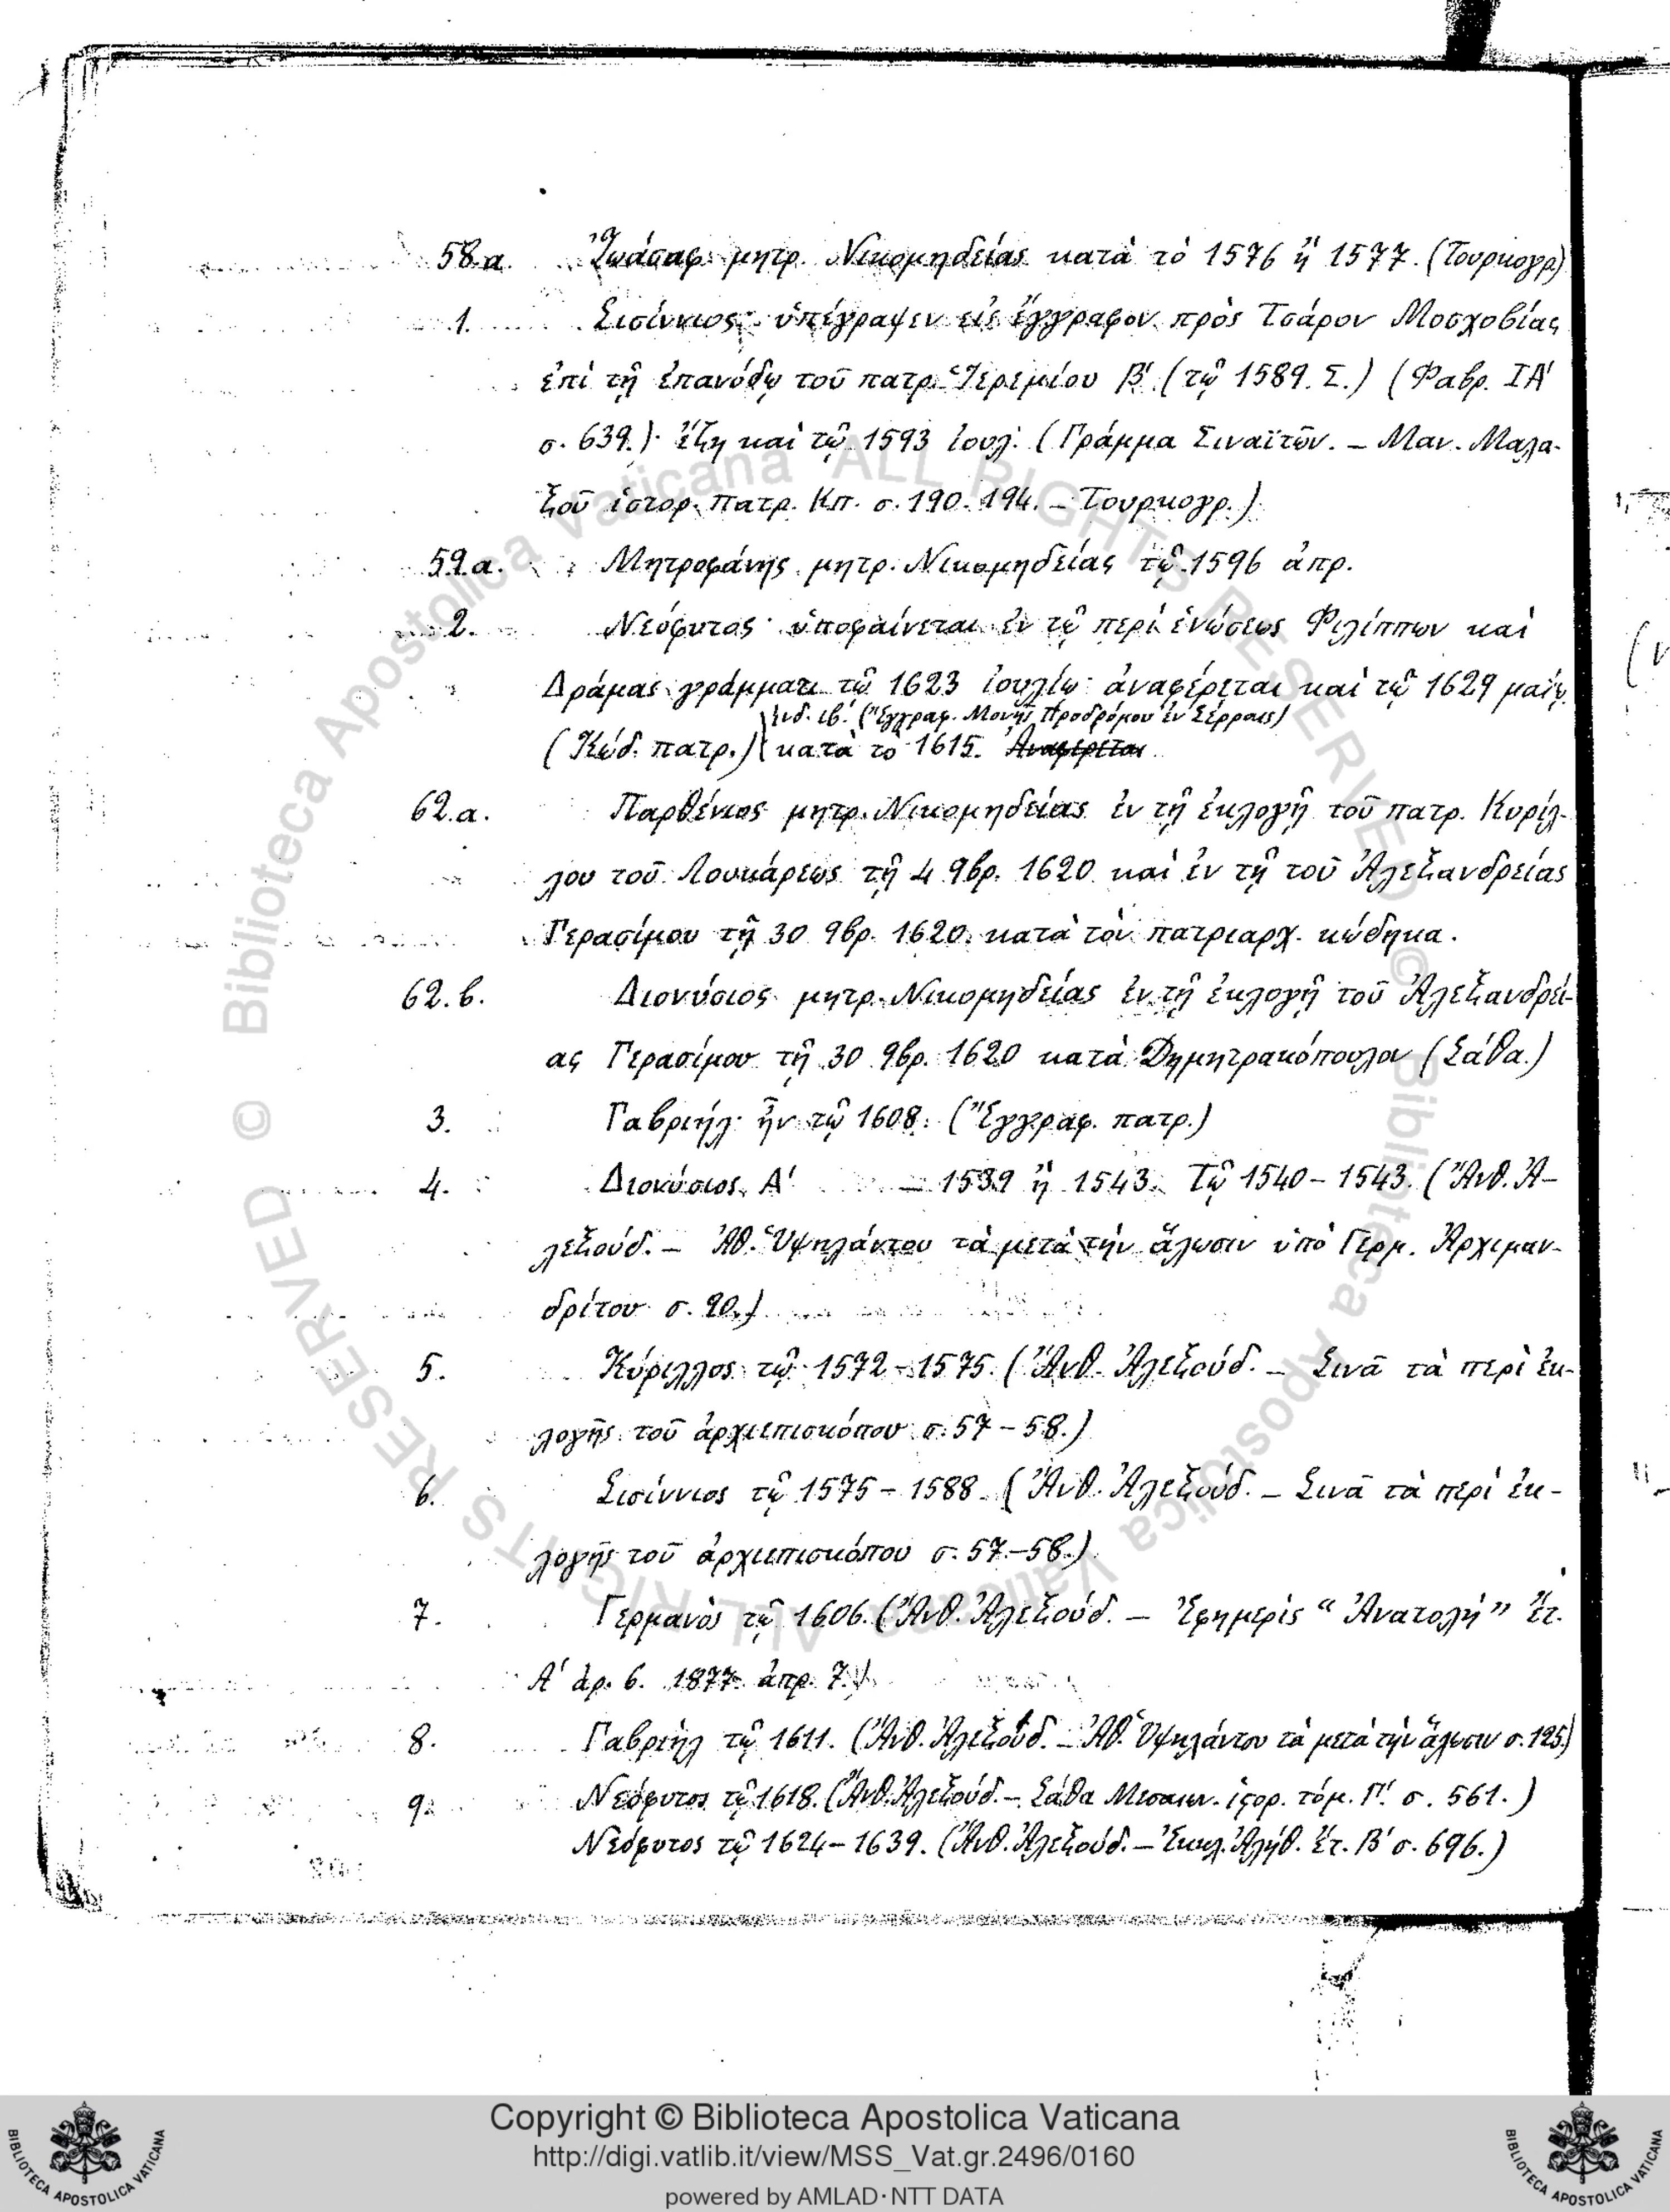 58.α. Ἰωάσαφ μητρ. Νικομηδείας κατὰ τὸ 1576 ἢ 1577. (Τουρκογρ)
1. Σισίννιος· ὑπέγραψεν εἰς ἔγγραφον πρὸς Τσάρον Μοσχοβίας
ἐπὶ τῇ ἐπανόδῳ τοῦ πατρ. Ἱερεμίου Β' (τῷ 1589. Σ.) (Φαβρ. ΙΑ'
σ. 639.)· ἔζη καὶ τῷ 1593 ἰουλ. (Γράμμα Σιναϊτῶν. – Μαν. Μαλα-
ξοῦ ἱστορ. πατρ. Κπ. σ. 190. 194. – Τουρκογρ.)
59.α. Μητροφάνης μητρ. Νικομηδείας τῷ 1596 ἀπρ.
2. Νεόφυτος· ὑποφαίνεται ἐν τῷ περὶ ἑνώσεως Φιλίππων καὶ
Δράμας γράμματι τῷ 1623 ἰουλίῳ· ἀναφέρεται καὶ τῷ 1629 μαΐῳ
ἰνδ. ιβ'. (Ἔγγραφ. Μονῆς Προδρόμου ἐν Σέρραις)
(Κώδ. πατρ.) κατὰ τὸ 1615. Ἀναφέρεται
62.α. Παρθένιος μητρ. Νικομηδείας ἐν τῇ ἐκλογῇ τοῦ πατρ. Κυρίλ-
λου τοῦ Λουκάρεως τῇ 4 9βρ. 1620 καὶ ἐν τῇ τοῦ Ἀλεξανδρείας
Γερασίμου τῇ 30 9βρ. 1620. κατὰ τὸν πατριαρχ. κώδηκα.
62.β. Διονύσιος μητρ. Νικομηδείας ἐν τῇ ἐκλογῇ τοῦ Ἀλεξανδρεί-
ας Γερασίμου τῇ 30 9βρ. 1620 κατὰ Δημητρακόπουλον (Σάθα.)
3. Γαβριήλ· ἦν τῷ 1608. (Ἔγγραφ. πατρ.)
4. Διονύσιος Α' – 1539 ἢ 1543. Τῷ 1540 – 1543. (Ἄνθ. Ἀ-
λεξούδ. – Ἀθ. Ὑψηλάντου τὰ μετὰ τὴν ἅλωσιν ὑπὸ Γερμ. Ἀρχιμαν-
δρίτου σ. 90.)
5. Κύριλλος τῷ 1572 – 1575. (Ἄνθ. Ἀλεξούδ. – Σινᾶ τὰ περὶ ἐκ-
λογῆς τοῦ ἀρχιεπισκόπου σ. 57 – 58.)
6. Σισίννιος τῷ 1575 – 1588. (Ἄνθ. Ἀλεξούδ. – Σινᾶ τὰ περὶ ἐκ-
λογῆς τοῦ ἀρχιεπισκόπου σ. 57.–58.)
7. Γερμανὸς τῷ 1606. (Ἄνθ. Ἀλεξούδ. – Ἐφημερὶς “Ἀνατολή” Ἔτ.
Α' ἀρ. 6. 1877. ἀπρ. 7.)
8. Γαβριὴλ τῷ 1611. (Ἄνθ. Ἀλεξούδ. – Ἀθ. Ὑψηλάντου τὰ μετὰ τὴν ἅλωσιν σ. 125.)
9. Νεόφυτος τῷ 1618. (Ἄνθ. Ἀλεξούδ. – Σάθα Μεσαιων. ἱστορ. τόμ. Γ'. σ. 561.)
Νεόφυτος τῷ 1624 – 1639. (Ἄνθ. Ἀλεξούδ. – Ἐκκλ. Ἀλήθ. Ἔτ. Β' σ. 696.)
© Biblioteca Apostolica Vaticana ALL RIGHTS RESERVED
© Biblioteca Apostolica Vaticana ALL RIGHTS RESERVED
Copyright © Biblioteca Apostolica Vaticana
http://digi.vatlib.it/view/MSS_Vat.gr.2496/0160
powered by AMLAD·NTT DATA
BIBLIOTECA APOSTOLICA VATICANA
BIBLIOTECA APOSTOLICA VATICANA